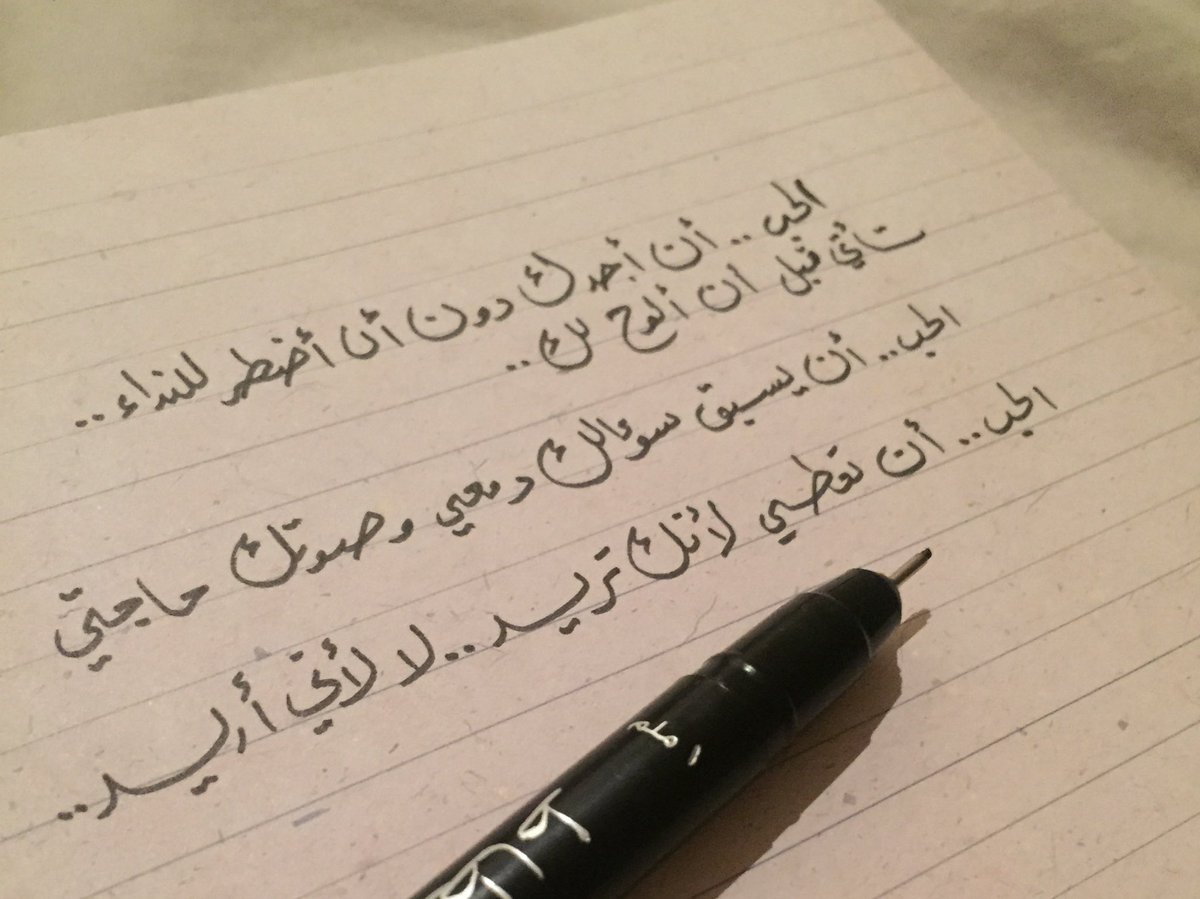 الحب .. أن أجدك دون أن أضطر للنداء ..
تأتي قبل أن ألوح لك ..
الحب .. أن يسبق سؤالك دمعي وصوتك حاجتي
الحب .. أن تعطي لأنك تريد .. لا لأني أريد ..
١ملم